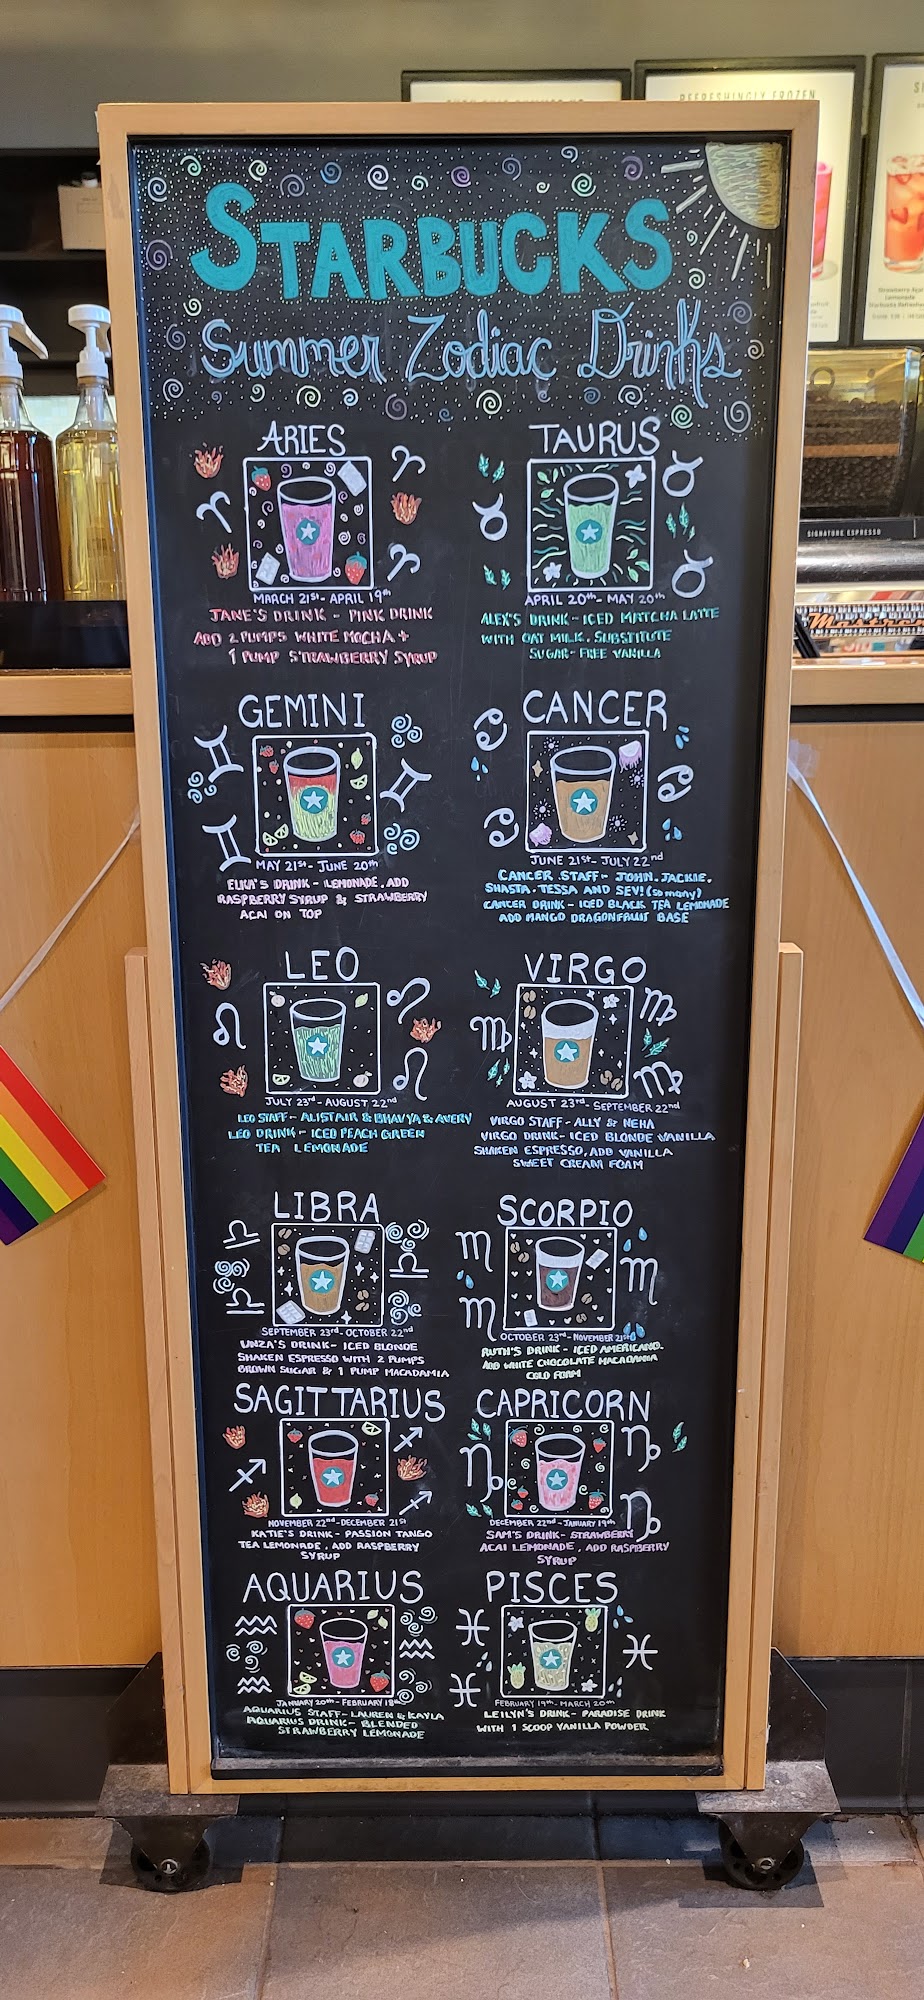 REFRESHINGLY FROZEN
STARBUCKS
Summer Zodiac Drinks
ARIES
MARCH 21st - APRIL 19th
JANE'S DRINK - PINK DRINK
ADD 2 PUMPS WHITE MOCHA +
1 PUMP STRAWBERRY SYRUP
TAURUS
APRIL 20th - MAY 20th
ALEX'S DRINK - ICED MATCHA LATTE
WITH OAT MILK. SUBSTITUTE
SUGAR-FREE VANILLA
GEMINI
MAY 21st - JUNE 20th
DRINK - LEMONADE. ADD
RASPBERRY SYRUP & STRAWBERRY
ACAI ON TOP
CANCER
JUNE 21st - JULY 22nd
CANCER STAFF - JOHN. JACKIE.
SHASTA. TESSA AND SEV! (so many)
CANCER DRINK - ICED BLACK TEA LEMONADE
ADD MANGO DRAGONFRUIT BASE
LEO
JULY 23rd - AUGUST 22nd
LEO STAFF - ALISTAIR & BHAVYA & AVERY
LEO DRINK - ICED PEACH GREEN
TEA LEMONADE
VIRGO
AUGUST 23rd - SEPTEMBER 22nd
VIRGO STAFF - ALLY & NEHA
VIRGO DRINK - ICED BLONDE VANILLA
SHAKEN ESPRESSO, ADD VANILLA
SWEET CREAM FOAM
LIBRA
SEPTEMBER 23rd - OCTOBER 22nd
UNZA'S DRINK - ICED BLONDE
SHAKEN ESPRESSO WITH 2 PUMPS
BROWN SUGAR & 1 PUMP MACADAMIA
SCORPIO
OCTOBER 23rd - NOVEMBER 21st
RUTH'S DRINK - ICED AMERICANO.
ADD WHITE CHOCOLATE MACADAMIA
COLD FOAM
SAGITTARIUS
NOVEMBER 22nd - DECEMBER 21st
KATIE'S DRINK - PASSION TANGO
TEA LEMONADE. ADD RASPBERRY
SYRUP
CAPRICORN
DECEMBER 22nd - JANUARY 19th
SAM'S DRINK - STRAWBERRY
ACAI LEMONADE. ADD RASPBERRY
SYRUP
AQUARIUS
JANUARY 20th - FEBRUARY 18th
AQUARIUS STAFF - LAUREN & KAYLA
AQUARIUS DRINK - BLENDED
STRAWBERRY LEMONADE
PISCES
FEBRUARY 19th - MARCH 20th
LEILYN'S DRINK - PARADISE DRINK
WITH 1 SCOOP VANILLA POWDER
SIGNATURE ESPRESSO
Mastrena